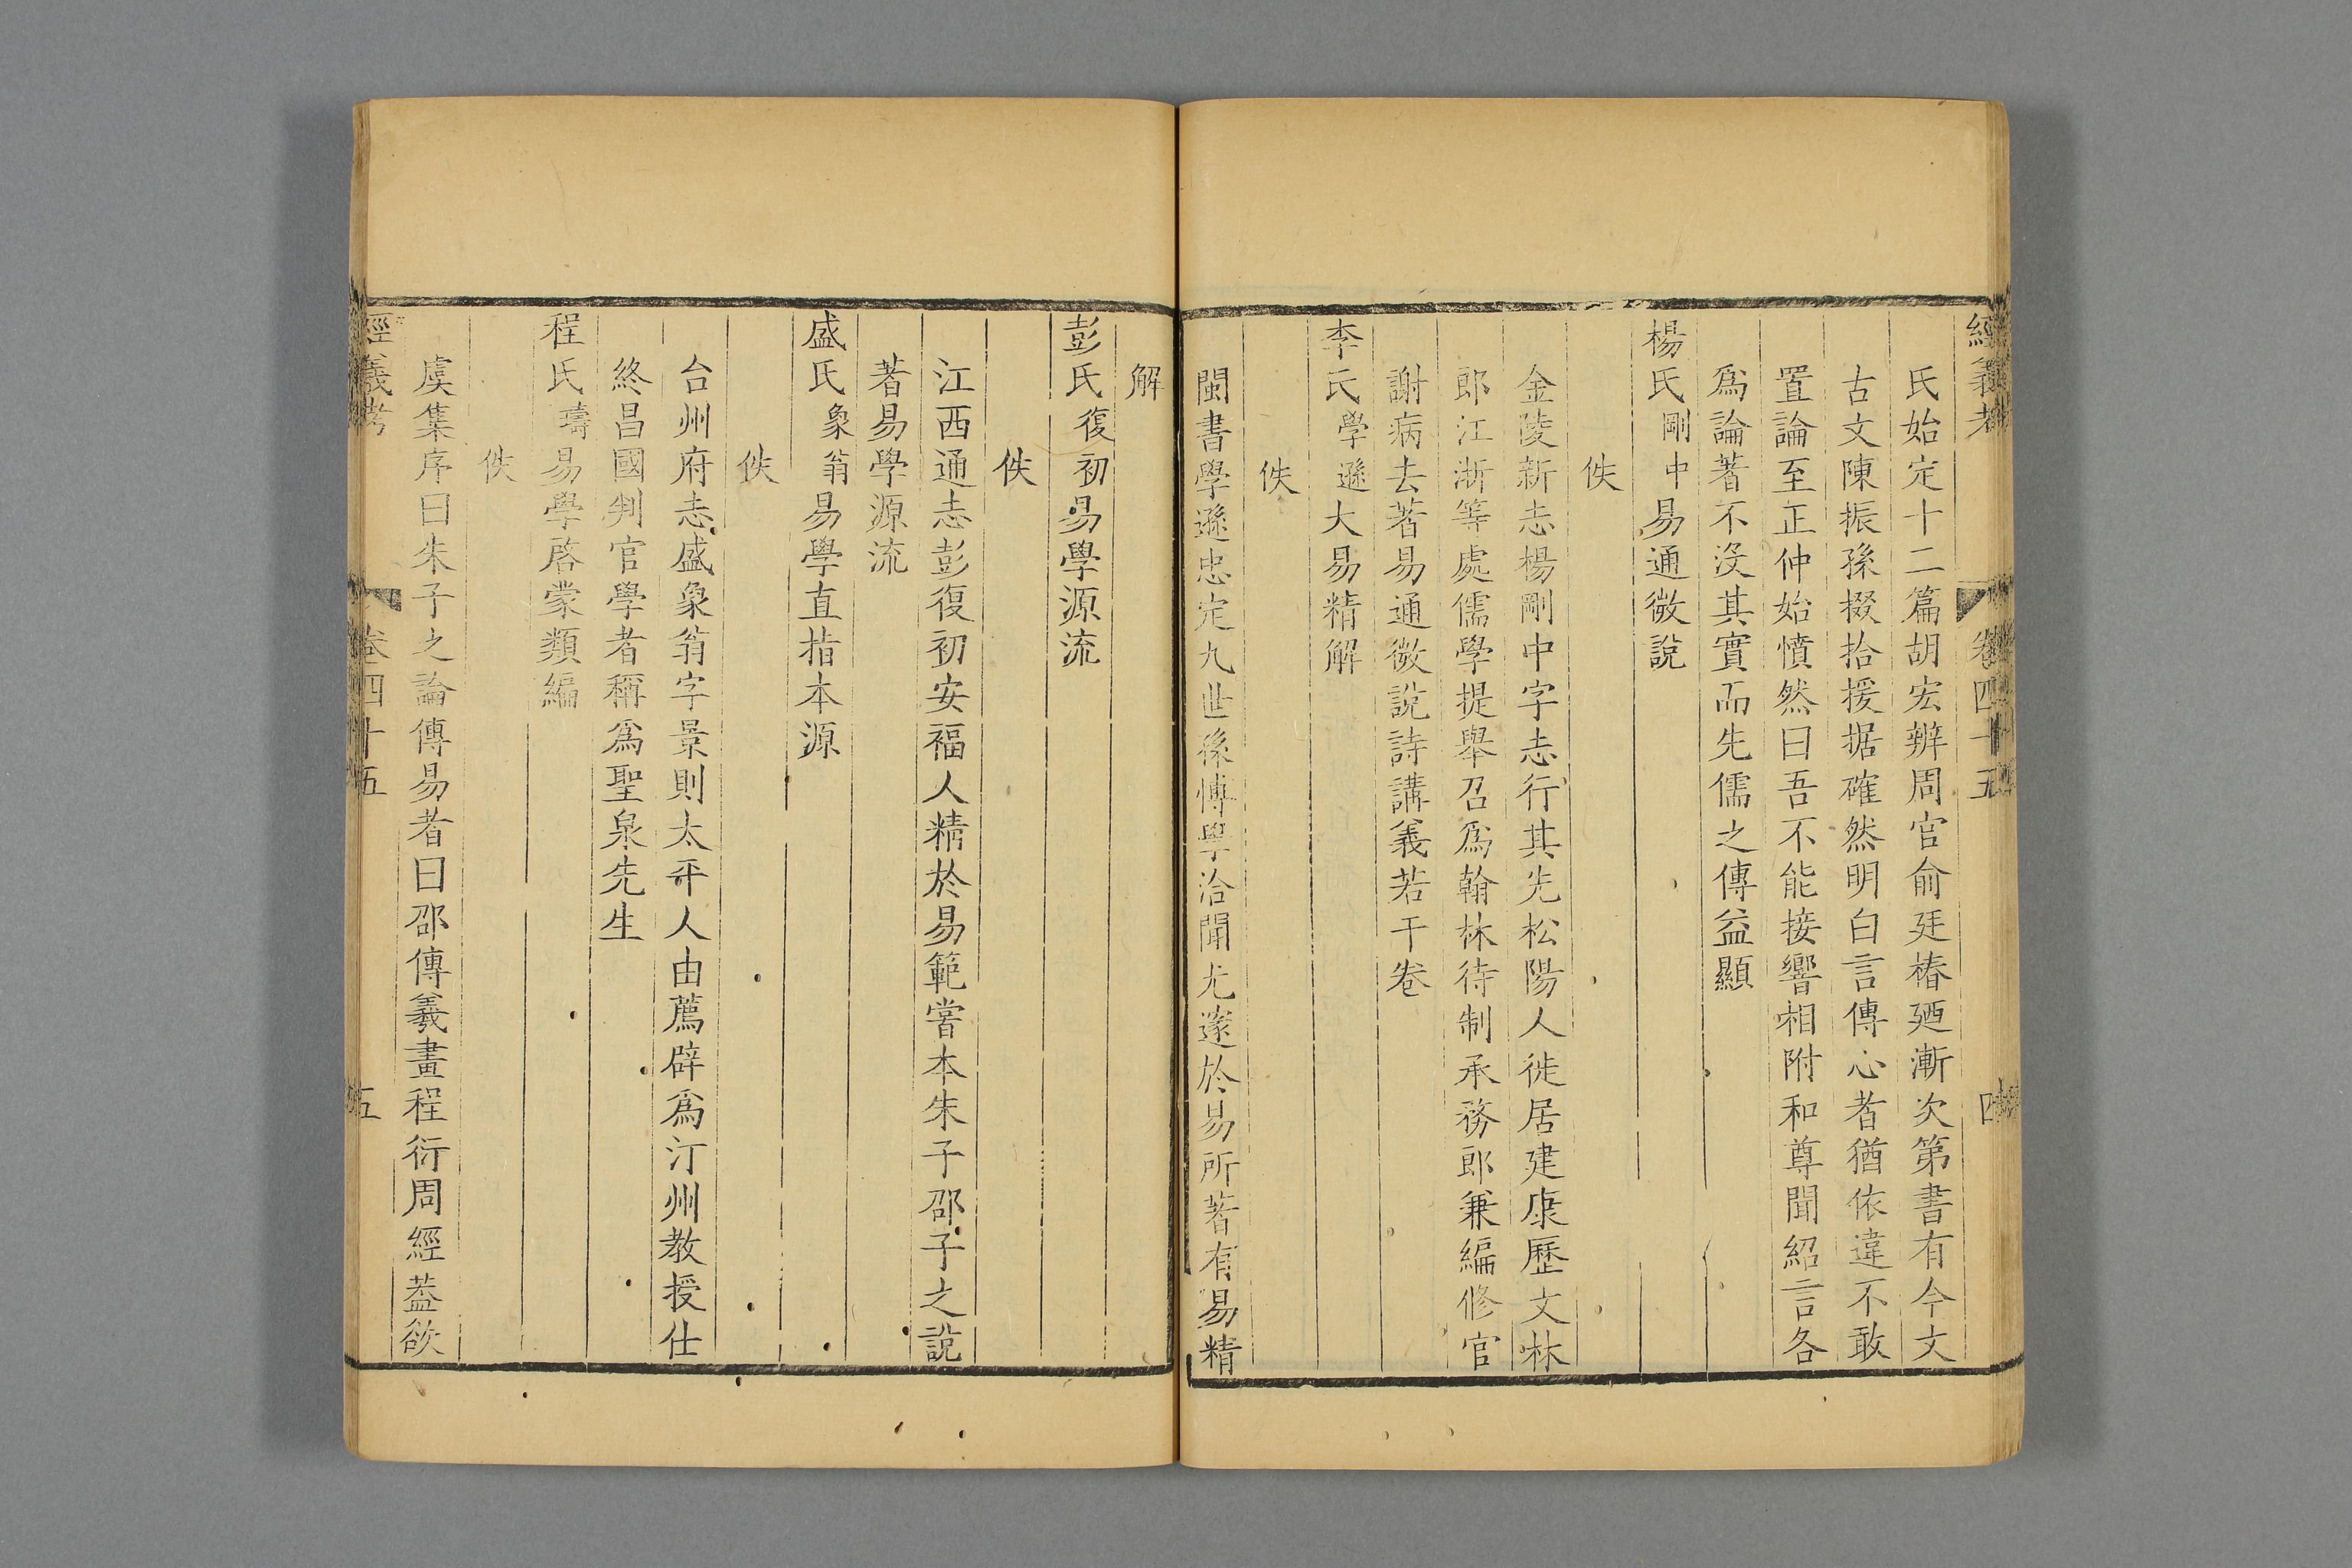 經義考 卷四十五 四
氏始定十二篇胡宏辨周官俞廷椿廼漸次第書有今文
古文陳振孫掇拾援据確然明白言傳心者猶依違不敢
置論至正仲始憤然曰吾不能接響相附和尊聞紹言各
爲論著不没其實而先儒之傳益顯
楊氏剛中易通微說
佚
金陵新志楊剛中字志行其先松陽人徙居建康歷文林
郎江浙等處儒學提舉召爲翰林待制承務郎兼編修官
謝病去著易通微說詩講義若干卷
李氏學遜大易精解
佚
閩書學遜忠定九世孫博學洽聞尤邃於易所著有易精
解
彭氏復初易學源流
佚
江西通志彭復初安福人精於易範嘗本朱子邵子之說
著易學源流
盛氏象翁易學直指本源
佚
台州府志盛象翁字景則太平人由薦辟爲汀州教授仕
終昌國判官學者稱爲聖泉先生
程氏𤪌易學啓蒙類編
佚
虞集序曰朱子之論傳易者曰邵傳羲畫程衍周經葢欲
經義考 卷四十五 五